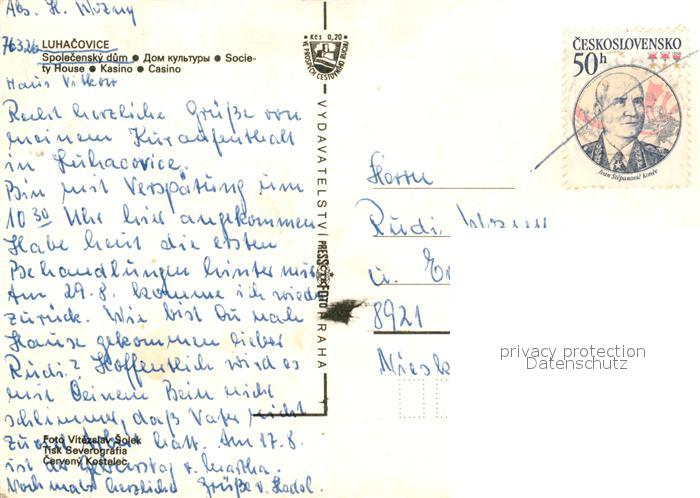 Abs. H. Wozny
76326 LUHAČOVICE
Společenský dům ● Дом культуры ● Socie-
ty House ● Kasino ● Casino
Haus
Recht herzliche Grüße von
meinem Kuraufenthalt
in Luhacovice.
Bin mit Verspätung um
10 30 Uhr hier angekommen
Habe heut die ersten
Behandlungen hinter mir
Am 29.8. komme ich wieder
zurück. Wie bist Du nach
Hause gekommen lieber
Rudi? Hoffentlich wird es
mit Deinem Bein nicht
schlimmer, daß Vater nicht
hatt. Am 17.8.
ist Geburtstag v. Martha.
Nochmals herzliche Grüße v.
Foto Vítězslav Šolek
Tisk Severografia
Červený Kostelec
Kčs 0,20
VE PROSPĚCH CESTOVNÍHO RUCHU
VYDAVATELSTVÍ PRESSFOTO PRAHA
ČESKOSLOVENSKO
50h
Ivan Štěpanovič Koněv
Herrn
Rudi Wozny
u.
8921
privacy protection
Datenschutz